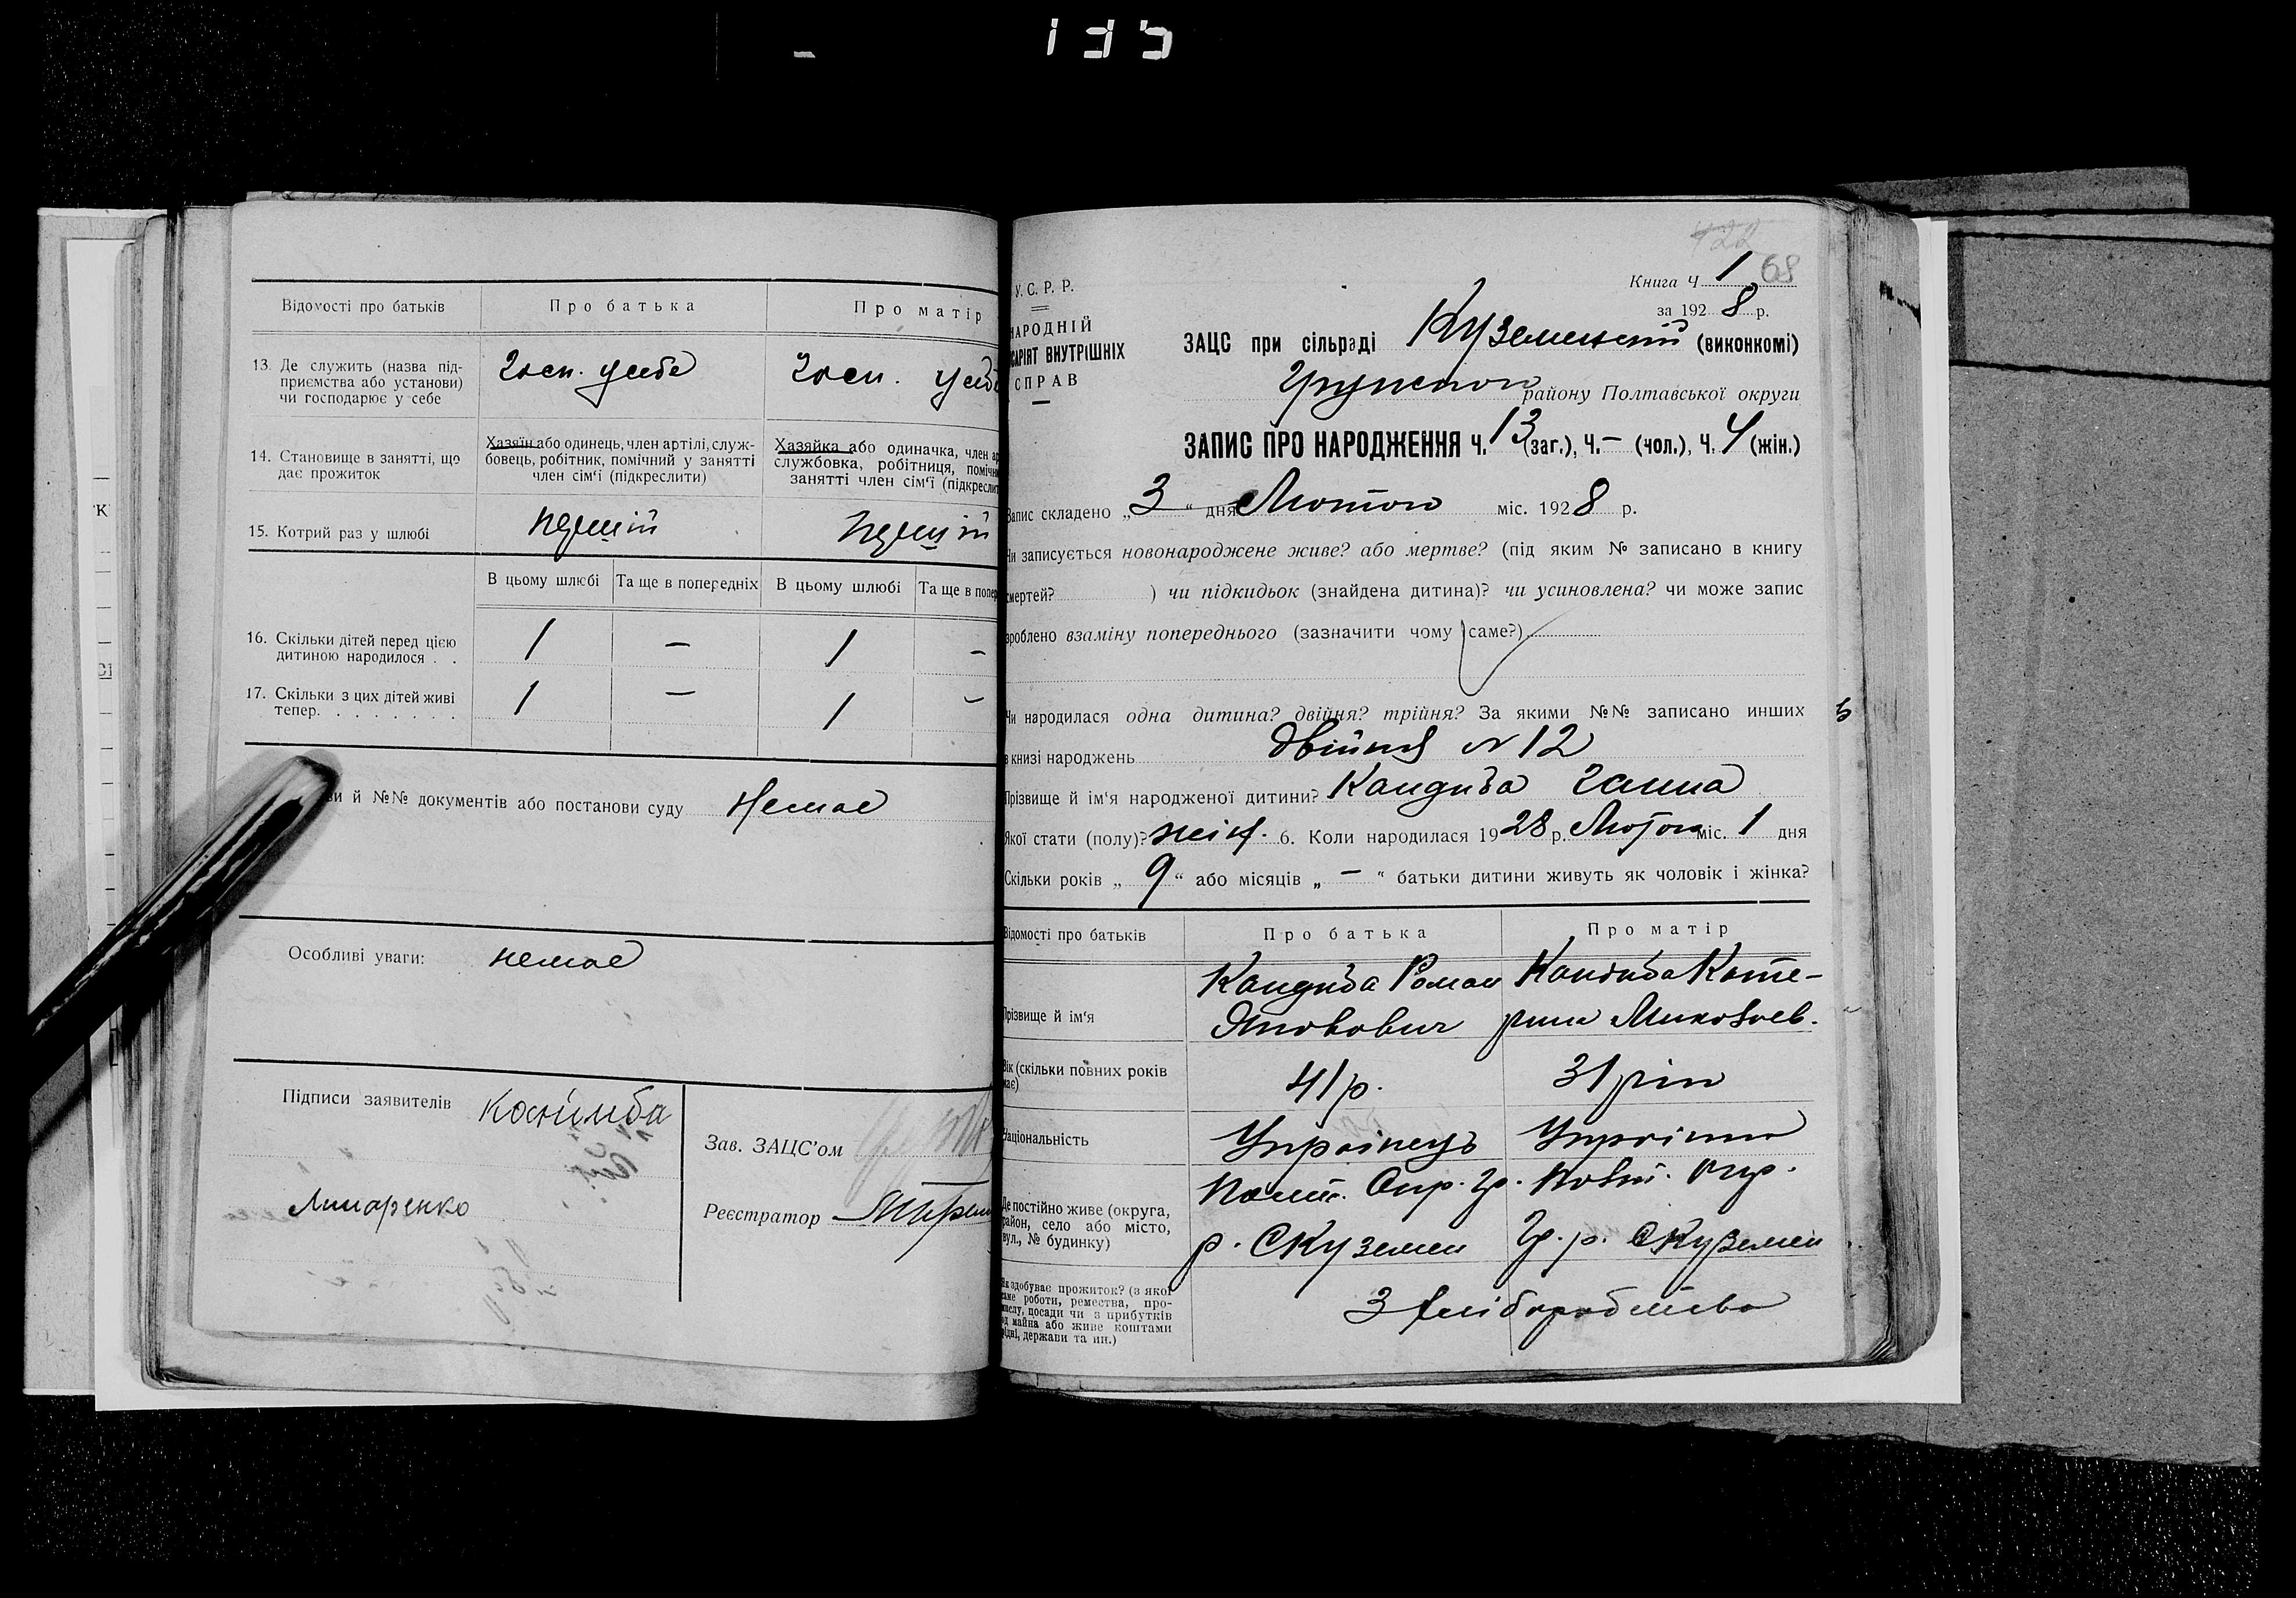 Відомості про батьків
Про батька
Про матір
13. Де служить (назва під-
приємства або установи)
чи господарює у себе
Госп. у себе
Госп. у себе
14. Становище в занятті, що
дає прожиток
Хазяїн або одинець, член артілі, служ-
бовець, робітник, помічний у занятті
член сім‘ї (підкреслити)
Хазяйка або одиначка, член ар
службовка, робітниця, поміч
занятті член сім‘ї (підкресли
15. Котрий раз у шлюбі
перший
перший
В цьому шлюбі
Та ще в попередніх
В цьому шлюбі
Та ще в попер
16. Скільки дітей перед цією
дитиною народилося . .
1 — 1 —
17. Скільки з цих дітей живі
тепер. . . . . . . .
1 — 1 —
ви й №№ документів або постанови суду Немає
Особливі уваги: немає
Підписи заявителів
Зав. ЗАЦС’ом
Лимаренко
Реєстратор
68
Книга Ч 1
за 1928 р.
У. С. Р. Р.
НАРОДНІЙ
САРІЯТ ВНУТРІШНІХ
СПРАВ
ЗАЦС при сільраді Куземенській (виконкомі)
Грунського району Полтавської округи
ЗАПИС ПРО НАРОДЖЕННЯ Ч. 13 (заг.), Ч. — (чол.), Ч. 4 (жін.)
Запис складено „3“ дня Лютого міс. 1928 р.
Чи записується новонароджене живе? або мертве? (під яким № записано в книгу
смертей? ) чи підкидьок (знайдена дитина)? чи усиновлена? чи може запис
зроблено взаміну попереднього (зазначити чому саме?)
Чи народилася одна дитина? двійня? трійня? За якими №№ записано инших
в книзі народжень двійня № 12
Прізвище й ім‘я народженої дитини? Кандиба Ганна
Якої стати (полу)? жін. 6. Коли народилася 1928 р. Лютого міс. 1 дня
Скільки років „9“ або місяців „—“ батьки дитини живуть як чоловік і жінка?
Відомості про батьків
Про батька
Про матір
Прізвище й ім‘я
Кандиба Роман
Яковович
Кандиба Кате-
рина Миколаєв.
Вік (скільки повних років
має)
41 р.
31 рік
Національність
Українець
Українка
Де постійно живе (округа,
район, село або місто,
вул., № будинку)
Полт. Окр. Гр.
р. С Куземен
Полт. Окр.
Гр. р. С Куземен
Як здобуває прожиток? (з якої
саме роботи, ремества, про-
мислу, посади чи з прибутків
од майна або живе коштами
рідні, держави та ин.)
З хліборобства